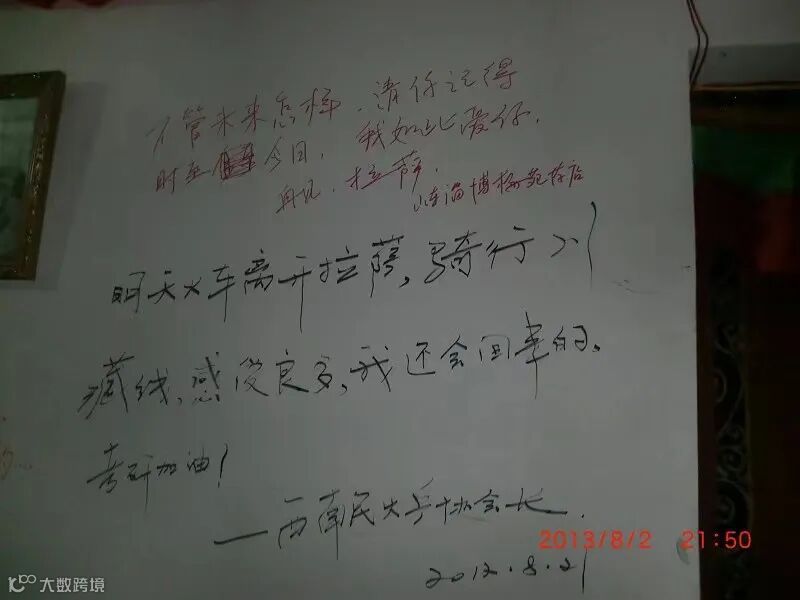 不管未来怎样，请你记得
时至今日，我如此爱你．
再见，拉萨．
山东淄博
明天火车离开拉萨，骑行川
藏线，感慨良多，我还会回来的。
考研加油！
——西南民大乒协会长．
2012.8.21
2013/8/2 21:50
大数跨境